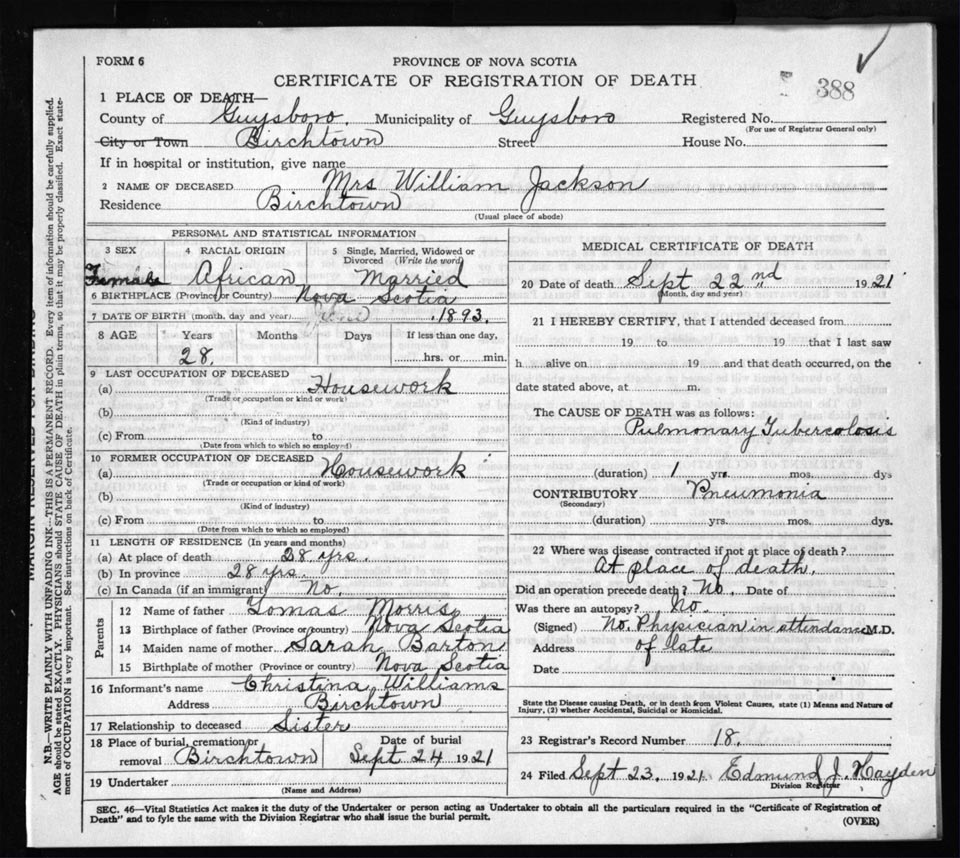 FORM 6
PROVINCE OF NOVA SCOTIA
CERTIFICATE OF REGISTRATION OF DEATH
388
1 PLACE OF DEATH—
County of Guysboro. Municipality of Guysboro Registered No.
(For use of Registrar General only)
City or Town Birchtown Street House No.
If in hospital or institution, give name
2 NAME OF DECEASED Mrs William Jackson
Residence Birchtown
(Usual place of abode)
PERSONAL AND STATISTICAL INFORMATION
3 SEX 4 RACIAL ORIGIN 5 Single, Married, Widowed or Divorced (Write the word)
Female African Married
6 BIRTHPLACE (Province or Country) Nova Scotia
7 DATE OF BIRTH (month, day and year) 1893.
8 AGE Years Months Days If less than one day,
28. hrs. or min.
9 LAST OCCUPATION OF DECEASED
(a) Housework
(Trade or occupation or kind or work)
(b)
(Kind of industry)
(c) From to
(Date from which to which so employed)
10 FORMER OCCUPATION OF DECEASED
(a) Housework
(Trade or occupation or kind of work)
(b)
(Kind of industry)
(c) From to
(Date from which to which so employed)
11 LENGTH OF RESIDENCE (In years and months)
(a) At place of death 28 yrs.
(b) In province 28 yrs.
(c) In Canada (if an immigrant) No.
Parents
12 Name of father Tomas Morris
13 Birthplace of father (Province or country) Nova Scotia
14 Maiden name of mother Sarah Barton
15 Birthplace of mother (Province or country) Nova Scotia
16 Informant's name Christina Williams
Address Birchtown
17 Relationship to deceased Sister
18 Place of burial, cremation or removal Birchtown Date of burial Sept 24 1921
19 Undertaker
(Name and Address)
MEDICAL CERTIFICATE OF DEATH
20 Date of death Sept 22nd 1921
(Month, day and year)
21 I HEREBY CERTIFY, that I attended deceased from
19 to 19 that I last saw
h alive on 19 and that death occurred, on the
date stated above, at m.
The CAUSE OF DEATH was as follows:
Pulmonary Tubercolosis
(duration) 1 yrs. mos. dys
CONTRIBUTORY Pneumonia
(Secondary)
(duration) yrs. mos. dys.
22 Where was disease contracted if not at place of death?
At place of death.
Did an operation precede death? No. Date of
Was there an autopsy? No.
(Signed) No. Physician in attendance M.D.
Address of late
Date
State the Disease causing Death, or in death from Violent Causes, state (1) Means and Nature of
Injury, (2) whether Accidental, Suicidal or Homicidal.
23 Registrar's Record Number 18.
24 Filed Sept 23, 1921. Edmund J. Hayden
Division Registrar
SEC. 46—Vital Statistics Act makes it the duty of the Undertaker or person acting as Undertaker to obtain all the particulars required in the "Certificate of Registration of
Death" and to fyle the same with the Division Registrar who shall issue the burial permit.
(OVER)
MARGIN RESERVED FOR BINDING
N.B.—WRITE PLAINLY WITH UNFADING INK—THIS IS A PERMANENT RECORD. Every item of information should be carefully supplied.
AGE should be stated EXACTLY. PHYSICIANS should STATE CAUSE OF DEATH in plain terms, so that it may be properly classified. Exact state-
ment of OCCUPATION is very important. See instructions on back of Certificate.